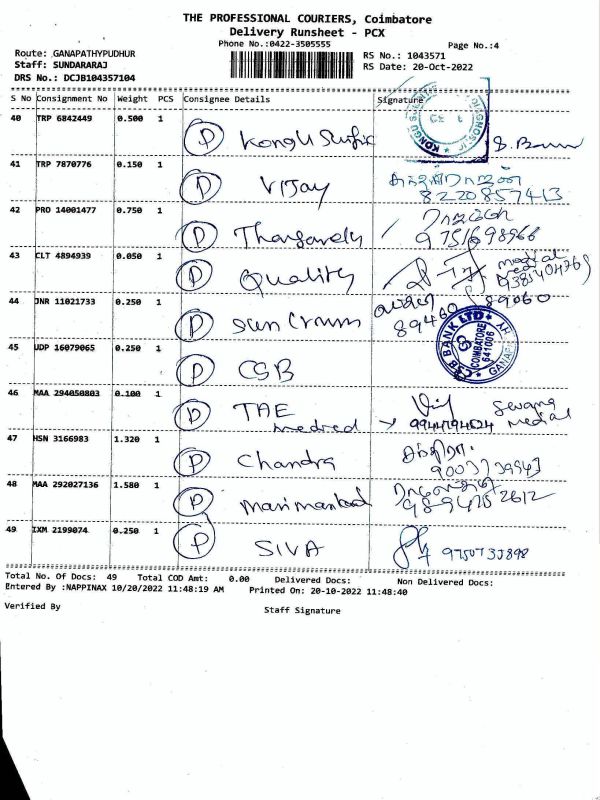 THE PROFESSIONAL COURIERS, Coimbatore
Delivery Runsheet - PCX
Phone No.:0422-3505555
Page No.:4
Route: GANAPATHYPUDHUR
RS No.: 1043571
Staff: SUNDARARAJ
RS Date: 20-Oct-2022
DRS No.: DCJB104357104
S No Consignment No Weight PCS Consignee Details Signature
40 TRP 6842449 0.500 1 P Kongu
41 TRP 7870776 0.150 1 P Vijay
8220857413
42 PRO 14001477 0.750 1 P Thangavelu
9751698966
43 CLT 4894939 0.050 1 P Quality
44 JNR 11021733 0.250 1 P Sun
89460 89060
45 UDP 16079065 0.250 1 P CSB
CSB BANK LTD
COIMBATORE
641006
46 MAA 294050803 0.100 1 P TAE
47 HSN 3166983 1.320 1 P Chandra
48 MAA 292027136 1.580 1 P
49 IXM 2199074 0.250 1 P SIVA
9750733898
Total No. Of Docs: 49 Total COD Amt: 0.00 Delivered Docs: Non Delivered Docs:
Entered By :NAPPINAX 10/20/2022 11:48:19 AM Printed On: 20-10-2022 11:48:40
Verified By
Staff Signature